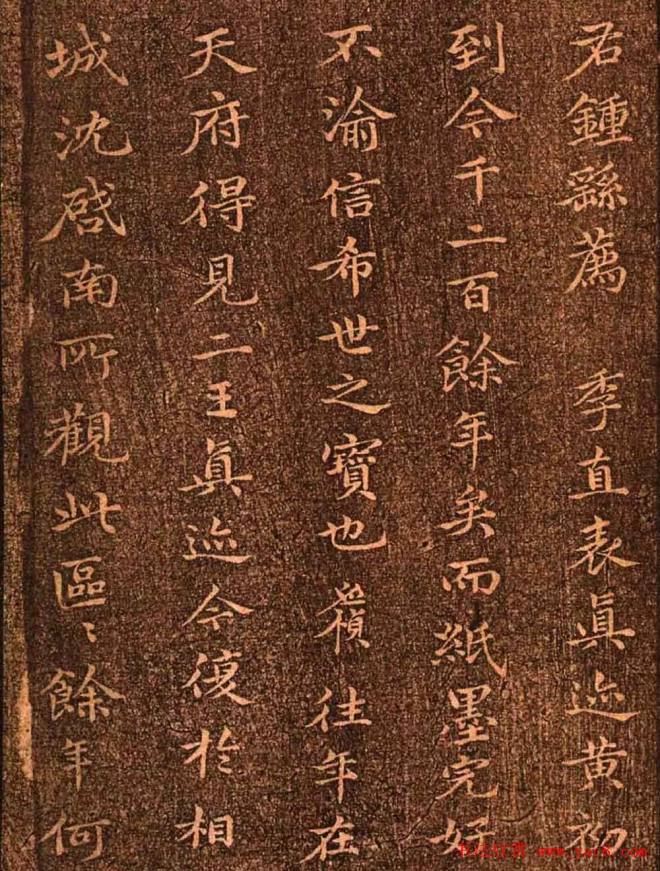 右鍾繇薦 季直表真迹黄初
到今千二百餘年矣而紙墨完好
不渝信希世之寶也嶷頫往年在
天府得見二王真迹今復於相
城沈啓南所觀此區〻餘年何